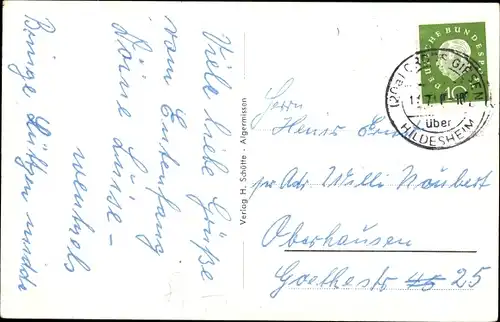 Viele liebe Grüße
vom Entenfang
Deine Luise -
Bringe Lüttgen
Verlag H. Schütte - Algermissen
DEUTSCHE BUNDESPOST
10
(20a) GROSS GIESEN
über
HILDESHEIM
Herrn
Heinz
per Adr. Willi Neubert
Oberhausen
Goethestr 45 25